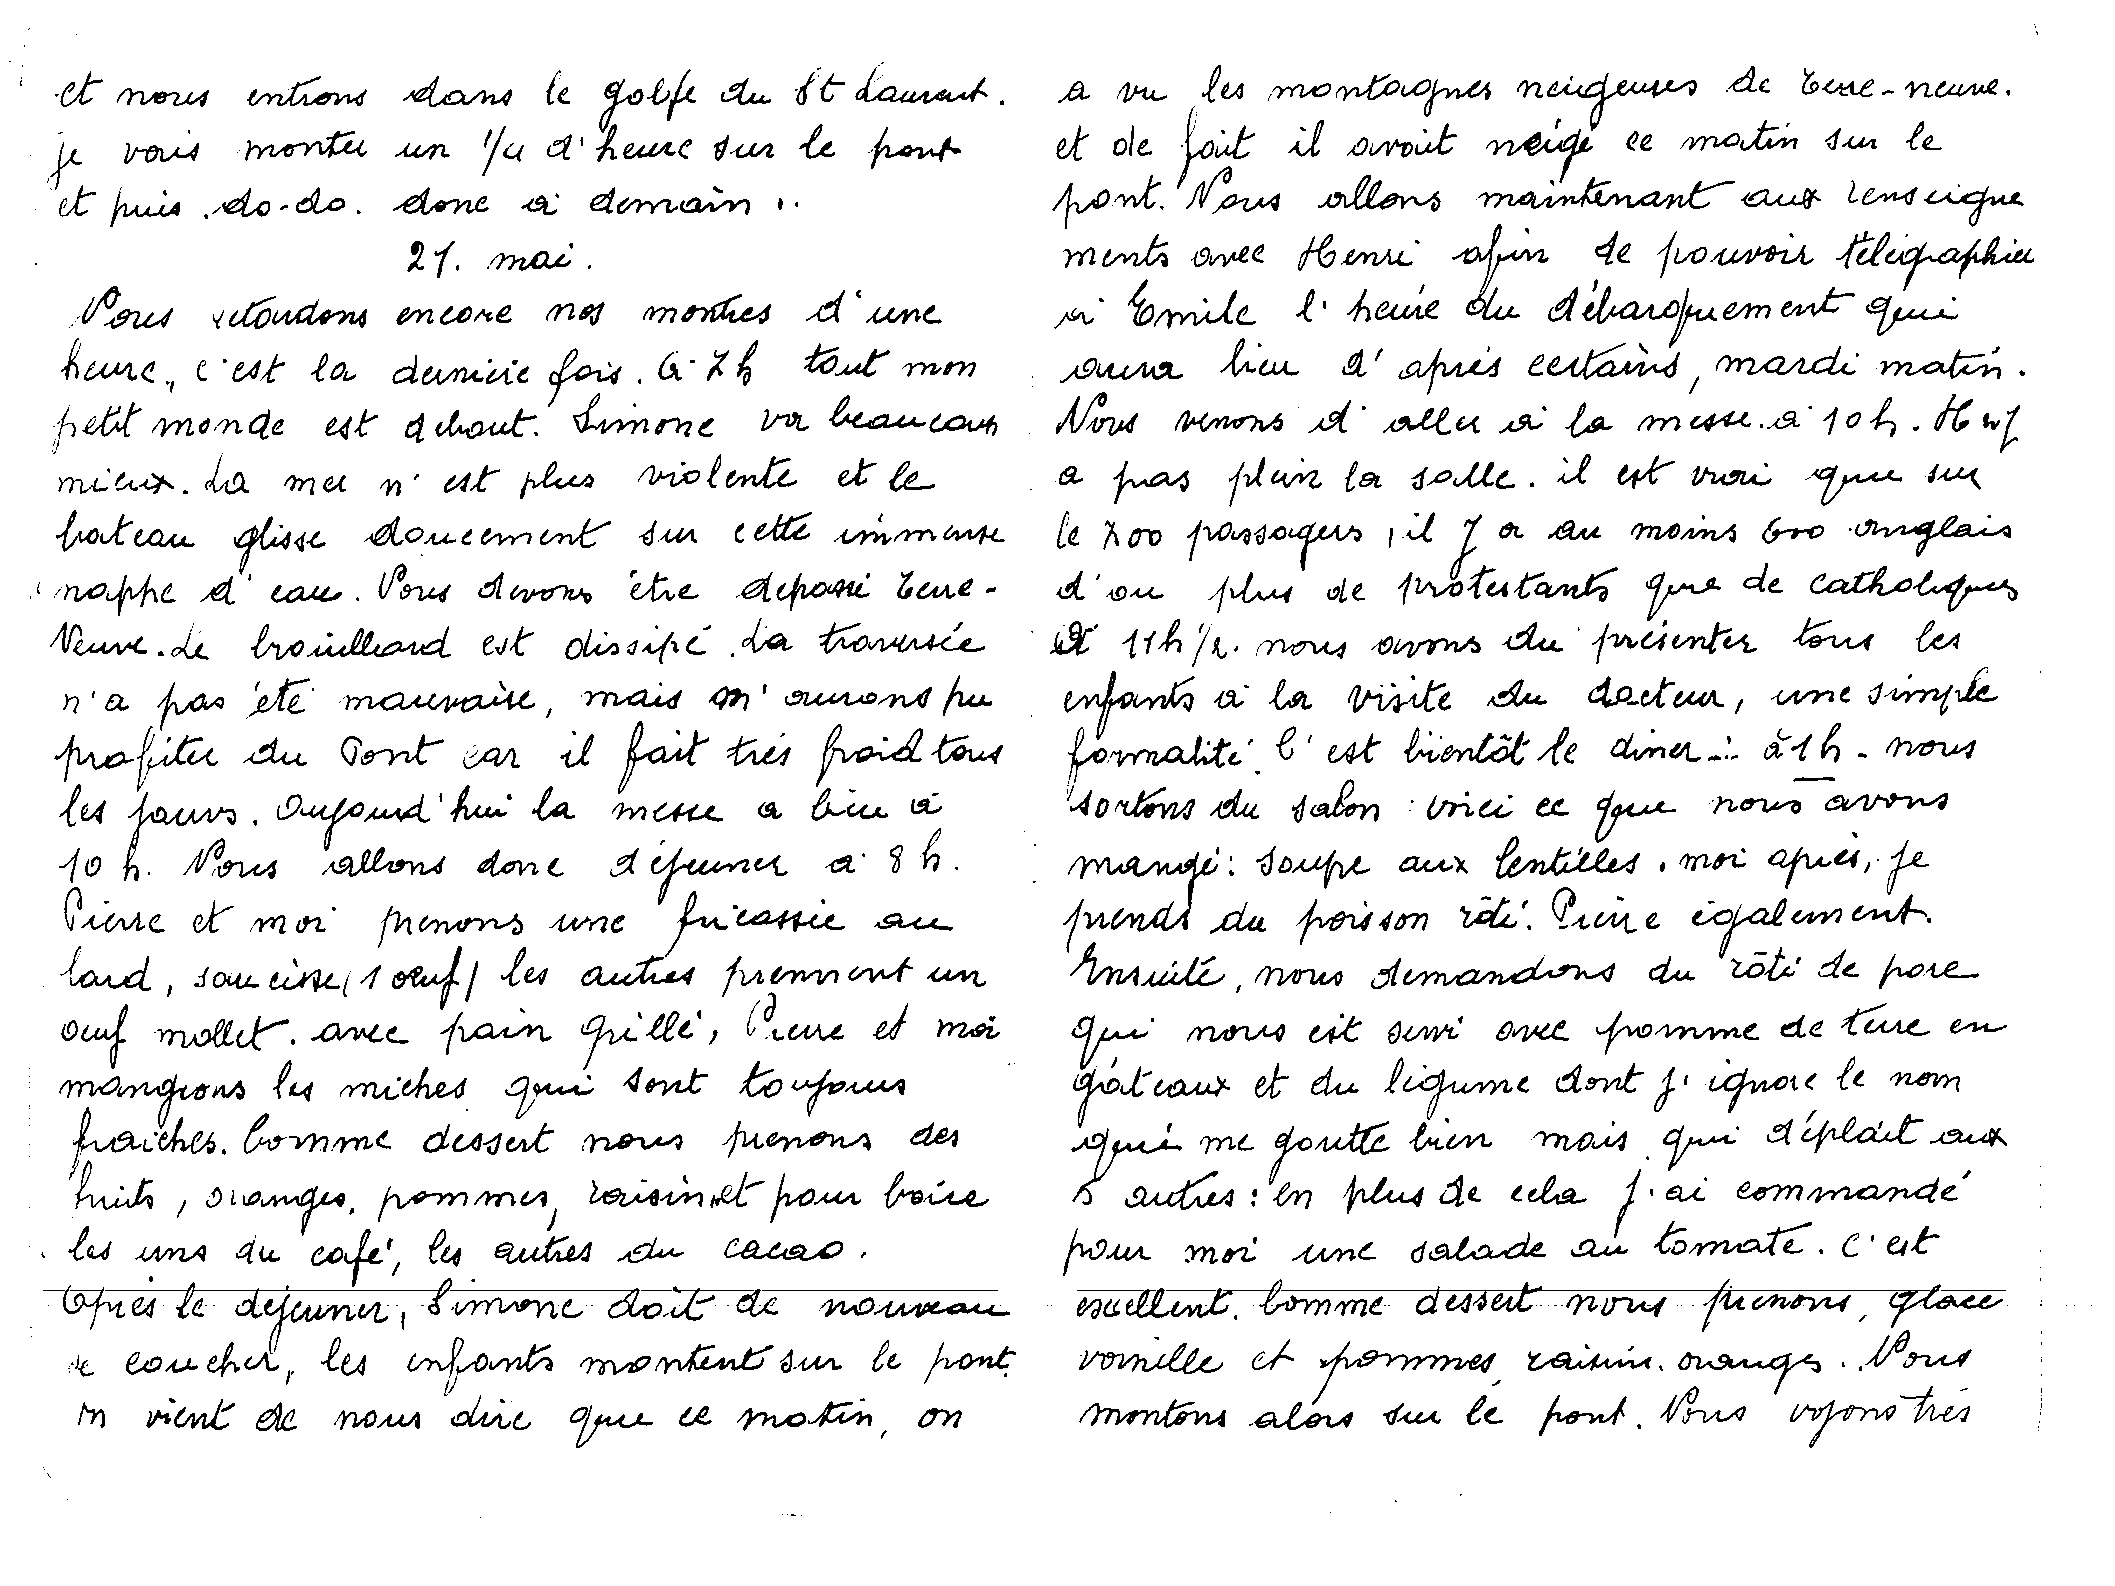 et nous entrons dans le golfe du St Laurent.
je vais monter un 1/4 d'heure sur le pont
et puis .do-do. donc à demain ..
21. mai.
Nous retardons encore nos montres d'une
heure, c'est la dernière fois. à 7 h tout mon
petit monde est debout. Simone va beaucoup
mieux. La mer n'est plus violente et le
bateau glisse doucement sur cette immense
nappe d'eau. Nous devons être dépassé Terre-
Neuve. Le brouillard est dissipé. La traversée
n'a pas été mauvaise, mais n'aurons pu
profiter du Pont car il fait très froid tous
les jours. Aujourd'hui la messe a lieu à
10 h. Nous allons donc déjeuner à 8 h.
Pierre et moi prenons une fricassée au
lard, saucisse (1 œuf) les autres prennent un
œuf mollet. avec pain grillé, Pierre et moi
mangeons les miches qui sont toujours
fraîches. Comme dessert nous prenons des
fruits, oranges, pommes, raisin et pour boire
les uns du café, les autres du cacao.
Après le déjeuner, Simone doit de nouveau
se coucher, les enfants montent sur le pont.
On vient de nous dire que ce matin, on
a vu les montagnes neigeuses de Terre-neuve.
et de fait il avait neigé ce matin sur le
pont. Nous allons maintenant aux renseigne
ments avec Henri afin de pouvoir télégraphier
à Emile l'heure du débarquement qui
aura lieu d'après certains, mardi matin.
Nous venons d'aller à la messe à 10 h. Il n'y
a pas plein la salle. il est vrai que sur
le 700 passagers, il y a au moins 600 anglais
d'ou plus de protestants que de catholiques
à 11h 1/2. nous avons du présenter tous les
enfants à la visite du docteur, une simple
formalité. C'est bientôt le diner - à 1 h - nous
sortons du salon : voici ce que nous avons
mangé : soupe aux lentilles. moi après, je
prends du poisson rôti. Pierre également.
Ensuite, nous demandons du rôti de porc
qui nous est servi avec pomme de terre en
gâteaux et du légume dont j'ignore le nom
qui me goutte bien mais qui déplait aux
5 autres : en plus de cela j'ai commandé
pour moi une salade au tomate. C'est
excellent. Comme dessert nous prenons, glace
vainille et pommes, raisin. oranges. Nous
montons alors sur le pont. Nous voyons très